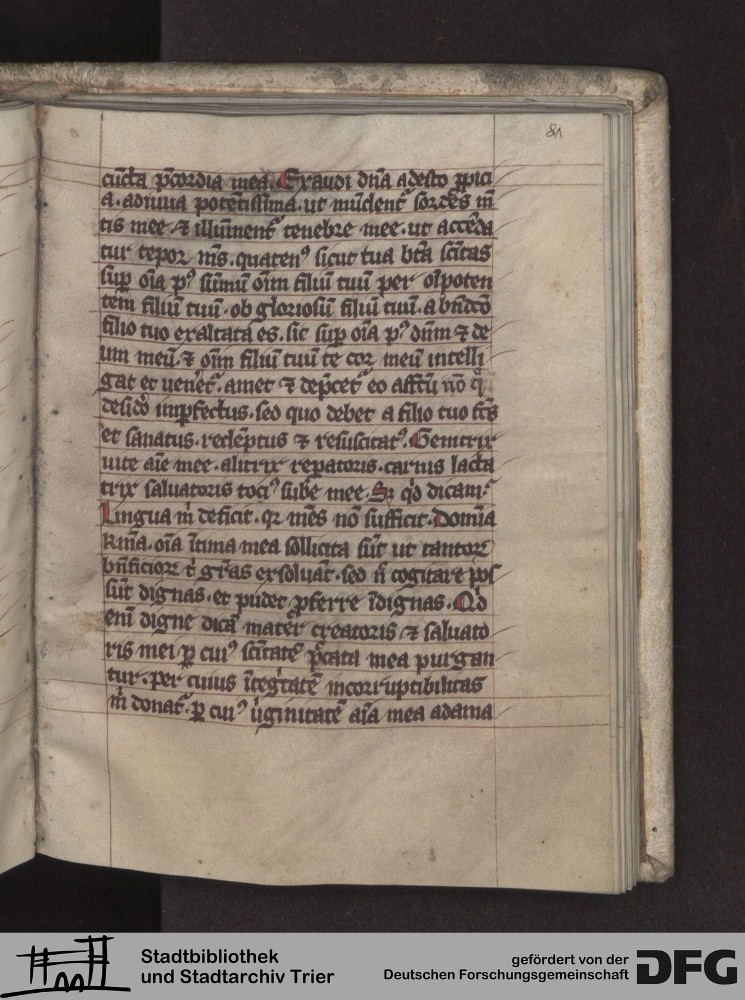 81
cūcta p̄cordia mea. Exaudi dn̄a adesto ꝓpici
a. adiuua potētissima. ut mūdent᷑ sordes m̄
tis mee. ⁊ illūinent᷑ tenebre mee. ut accēda
tur tepor m̄s. quatenꝰ sicut tua bt̄a sc̄itas
suꝑ oīa pꝰ sūmū oīm filiū tuū per oīpoten
tem filiū tuū. ob gloriosū filiū tuū. a bn̄dc̄o
filio tuo exaltata es. sic suꝑ oīa pꝰ dn̄m ⁊ de
um meū. ⁊ oīm filiū tuū te cor meū intelli
gat et uenet᷑. amet ⁊ dep̄cet᷑ eo affc̄tu nō
desid̓o imꝑfectus. sed quo debet a filio tuo fc̄s
et sanatus. redēptus ⁊ resuscitatꝰ. Genitrix
uite aīe mee. alitrix repatoris. carnis lacta
trix saluatoris tociꝰ sub̄e mee. Sꝫ qd̓ dicam.
Lingua m̄ deficit. qꝛ mēs nō sufficit. Domīa
kma. oīa ītima mea sollicita sūt ut tantoꝝ
bn̄ficioꝝ t̄ gr̄as exsoluāt. sed n̄ cogitare pos
sūt dignas. et pudet ꝓferre īdignas. Qd̓
enī digne dicā matēr creatoris ⁊ saluato
ris mei ꝑ cuiꝰ sc̄itatē p̄cata mea purgan
tur. per cuius ītegͥtatē incorruptibilitas
m̄ donat᷑. ꝑ cuiꝰ ūginitatē aīa mea adama
Stadtbibliothek
und Stadtarchiv Trier
gefördert von der
Deutschen Forschungsgemeinschaft
DFG